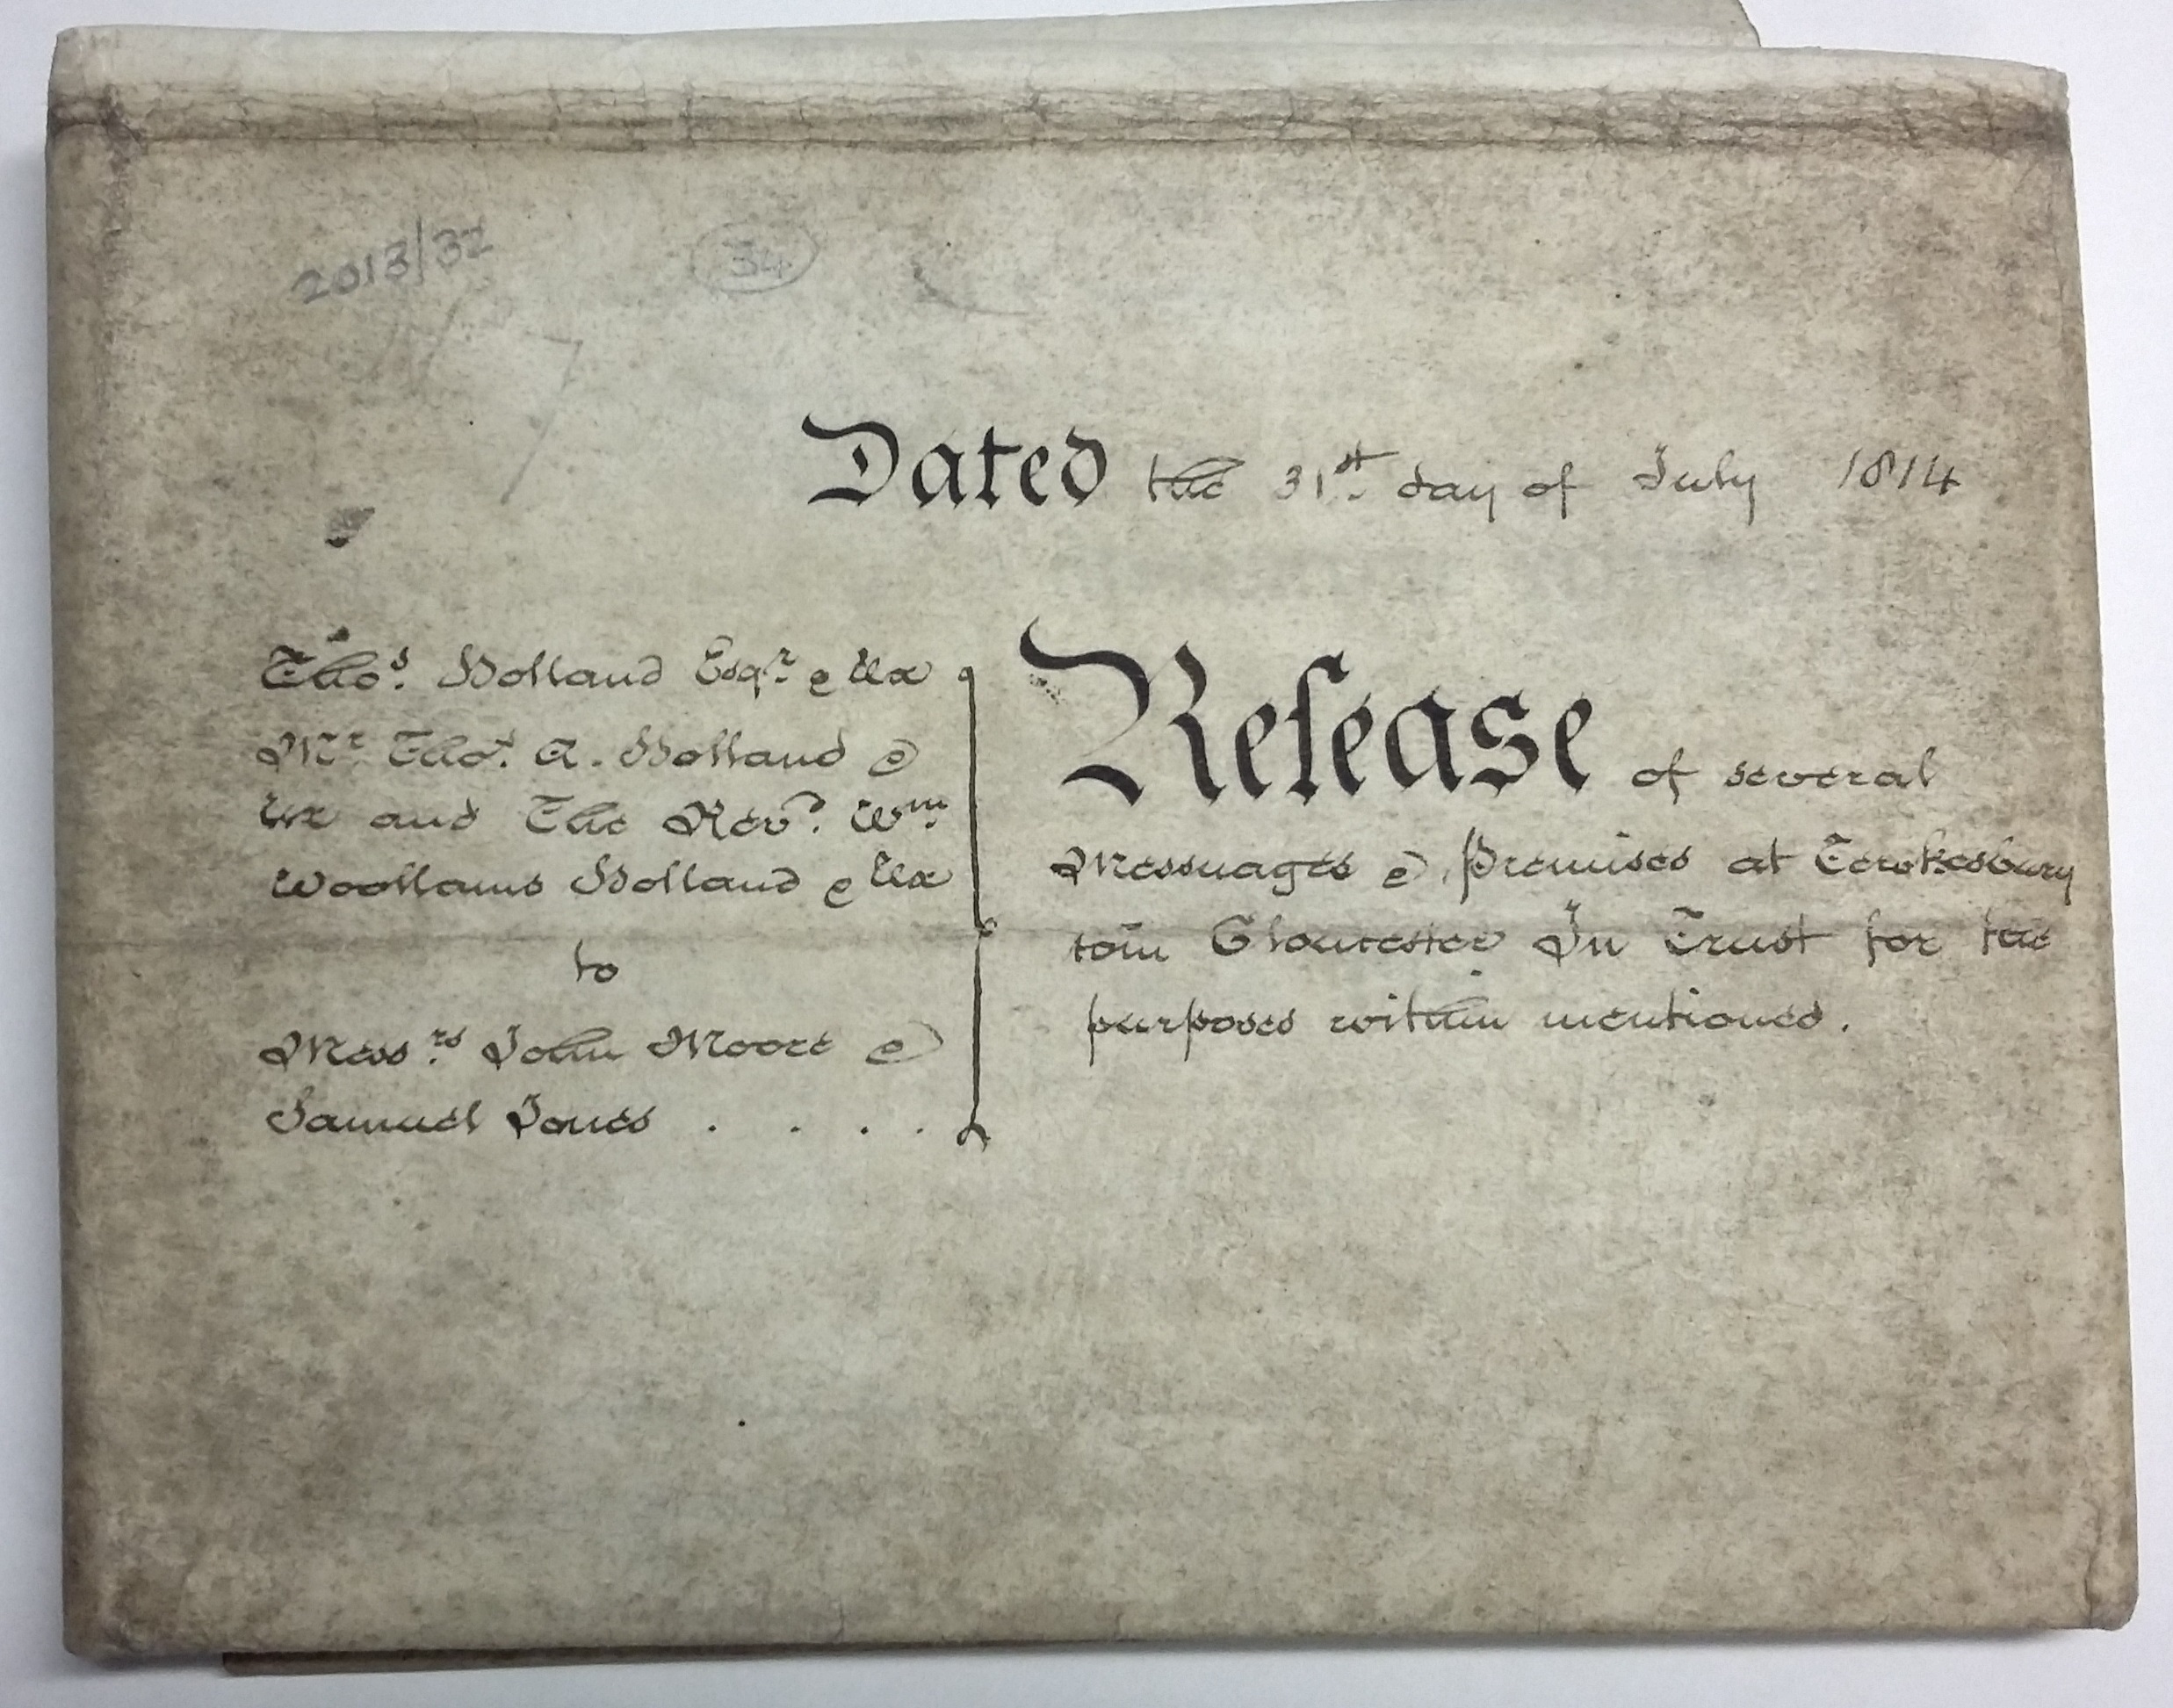 2013/32
34
7
Dated the 31st. day of July 1814
Thos. Holland Esqr. & Ux
Mr. Thos. A. Holland &
Ux and The Revd. Wm.
Woollams Holland & Ux
to
Messrs John Moore &
Samuel Jones . . . .
Release of several
Messuages & Premises at Tewkesbury
com̄ Gloucester In Trust for the
purposes within mentioned.